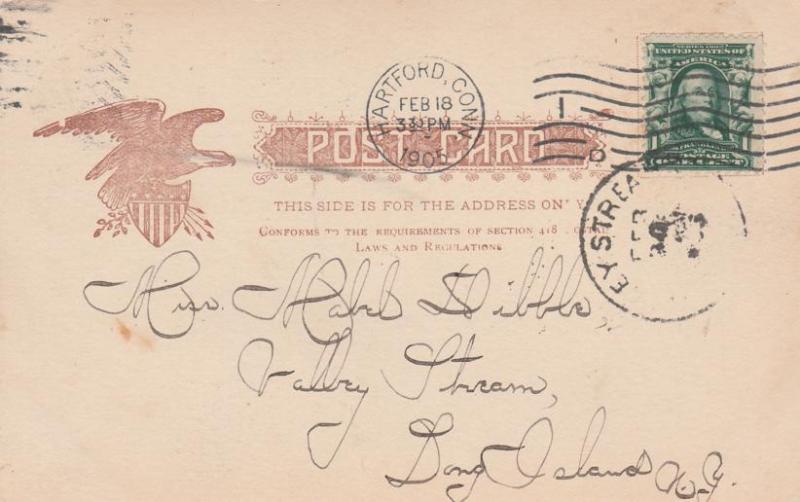 HARTFORD, CONN.
FEB 18
3 30 PM
1905
1
D
SERIES 1902
UNITED STATES OF
AMERICA
FRANKLIN
POSTAGE
ONE CENT
POST CARD
THIS SIDE IS FOR THE ADDRESS ON Y
CONFORMS TO THE REQUIREMENTS OF SECTION 418 OSTAL
LAWS AND REGULATIONS
EY STREA
FEB
Miss. Mabel Dibble,
Valley Stream,
Long Island N.Y.